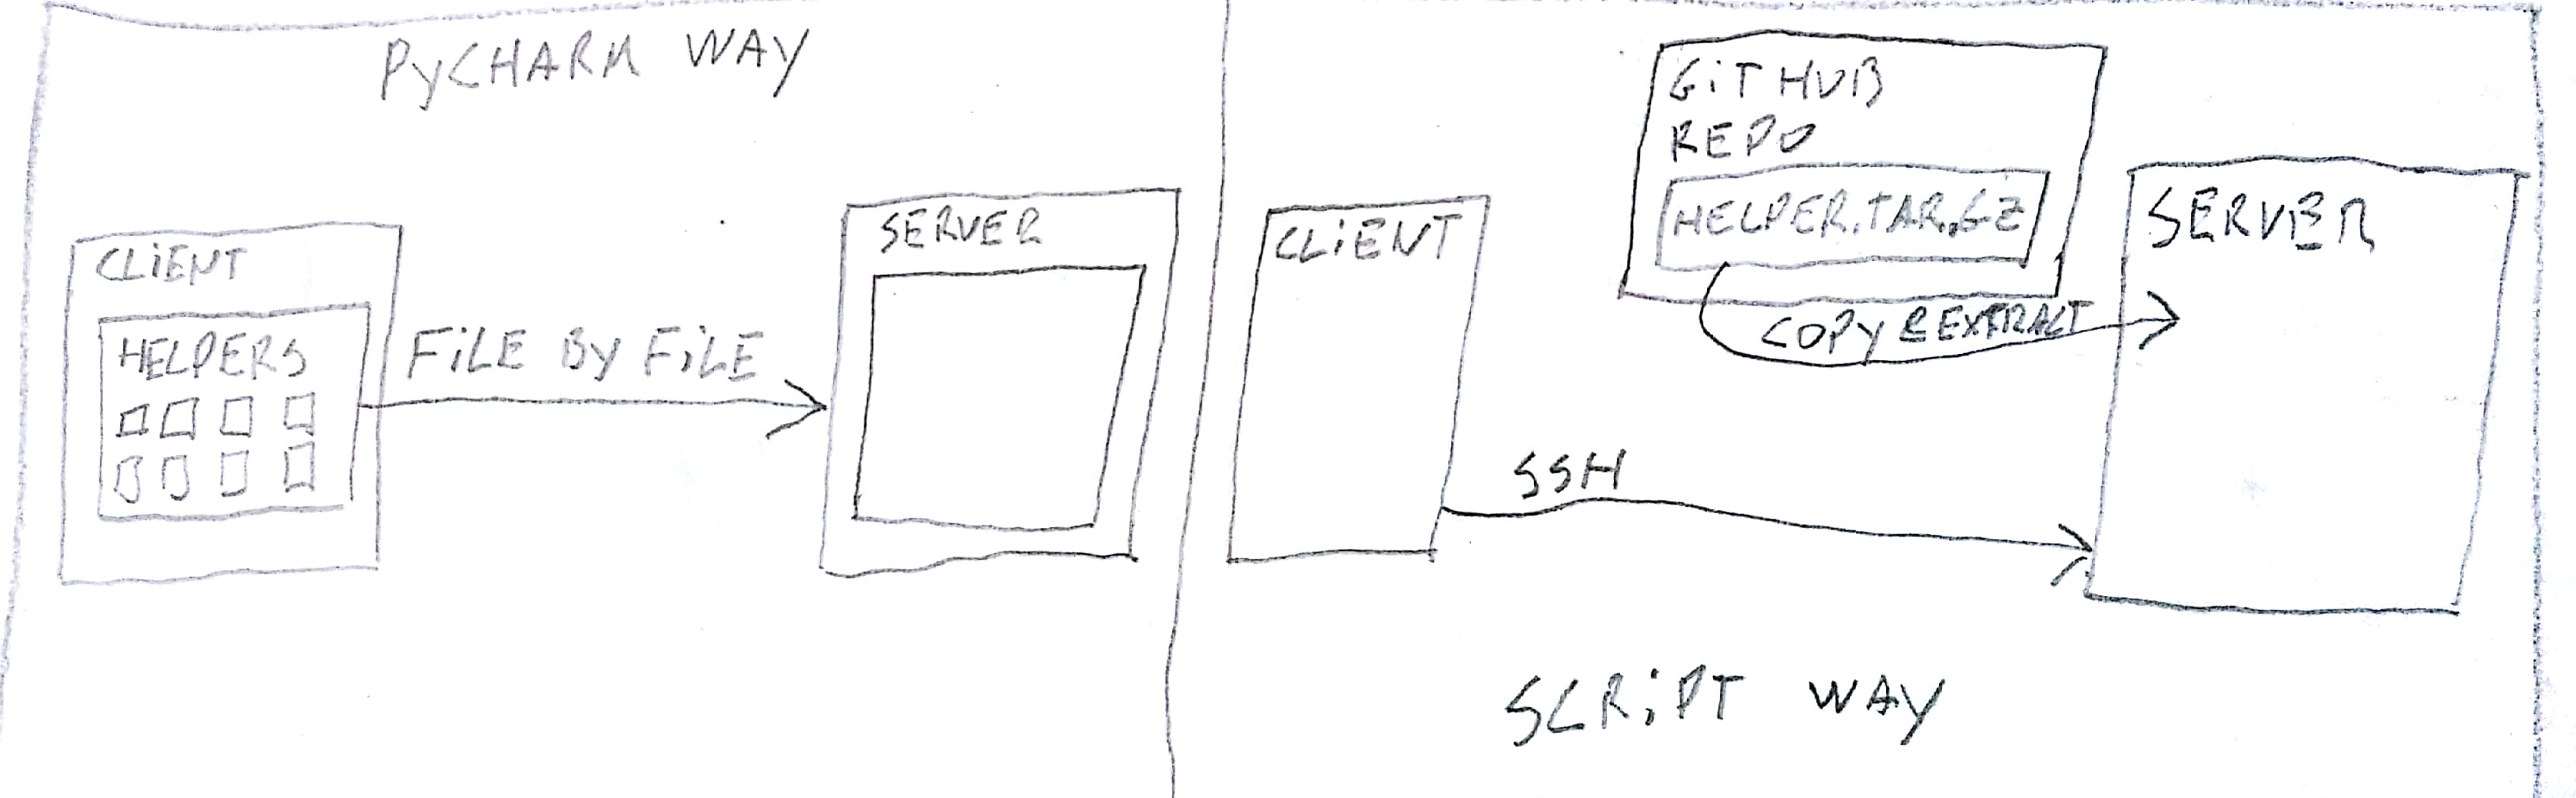 PyCHARM WAY
CLiENT
HELPERS
FiLE By FiLE
SERVER
GiTHUB
REPO
HELPER.TAR.GZ
CLiENT
SERVER
COPy & EXTRACT
SSH
SCRiPT WAY